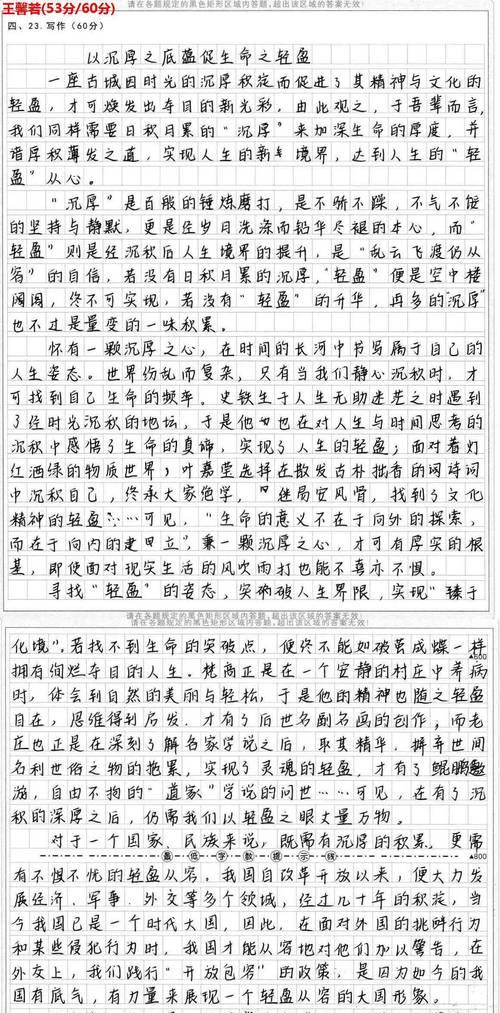 王馨若(53分/60分)
请在各题规定的黑色矩形区域内答题,超出该区域的答案无效!
四、23.写作(60分)
以沉厚之底蕴促生命之轻盈
一座古城因时光的沉厚积淀而促进了其精神与文化的
轻盈,才可焕发出夺目的新光彩。由此观之,于吾辈而言,
我们同样需要日积月累的“沉厚”来加深生命的厚度,并
谙厚积薄发之道,实现人生的新境界,达到人生的“轻
盈”从心。
“沉厚”是百般的锤炼磨打,是不骄不躁,不气不馁
的坚持与静默,更是经岁月洗涤而铅华尽褪的本心,而“
轻盈”则是经沉积后人生境界的提升,是“乱云飞渡仍从
容”的自信,若没有日积月累的沉厚,“轻盈”便是空中楼
阁,终不可实现,若没有“轻盈”的升华,再多的“沉厚”
也不过是量变的一味积累。
怀有一颗沉厚之心,在时间的长河中书写属于自己的
人生姿态。世界纷乱而复杂,只有当我们静心沉积时,才
可找到自己生命的频率。史铁生于人生无助迷茫之时遇到
了经时光沉积的地坛,于是他也在对人生与时间思考的
沉积中感悟了生命的真谛,实现了人生的轻盈;面对着灯
红酒绿的物质世界,叶嘉莹选择在散发古朴拙香的词诗词
中沉积自己,终承大家绝学,迷局定风骨,找到了文化
精神的轻盈……可见,“生命的意义不在于向外的探索,
而在于向内的建立”,秉一颗沉厚之心,才可有厚实的根
基,即使面对现实生活的风吹雨打也能不喜亦不惧。
寻找“轻盈”的姿态,突破人生界限,实现“臻于
请在各题规定的黑色矩形区域内答题,超出该区域的答案无效!
请在各题规定的黑色矩形区域内答题,超出该区域的答案无效!
化境”。若找不到生命的突破点,便终不能如破茧成蝶一样
▲600
拥有绚烂夺目的人生。梵高正是在一个安静的村庄中养病
时,体会到自然的美丽与轻松,于是他的精神也随之轻盈
自在,思维得到启发,才有了后世名副名画的创作;而老
庄也正是在深刻了解名家学说之后,取其精华,摒弃世间
名利世俗之物的拖累,实现了灵魂的轻盈,才有了鲲鹏遨
游,自由不拘的“道家”学说的问世……可见,在有了沉
积的深厚之后,仍需我们以轻盈之眼丈量万物。
对于一个国家、民族来说,既需有沉厚的积累,更需
最低字数提示线
▲800
有不惧不忧的轻盈从容,我国自改革开放以来,便大力发
展经济、军事、外交等多个领域,经过几十年的积淀,当
今我国已是一个时代大国,因此,在面对外国的挑衅行为
和某些侵犯行为时,我国才能从容地对他们加以警告,在
外交上,我们践行“开放包容”的政策,是因为如今的我
国有底气,有力量来展现一个轻盈从容的大国形象。